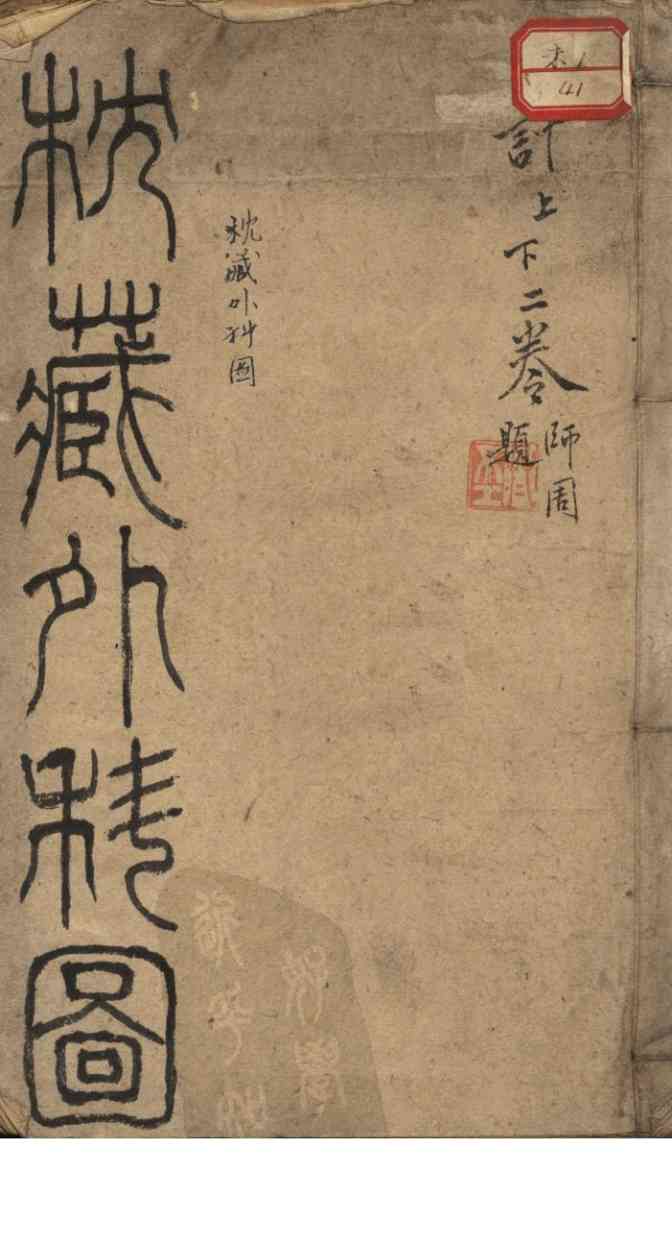 41
計上下二卷
師周
題
枕藏外科圖
枕藏外科圖